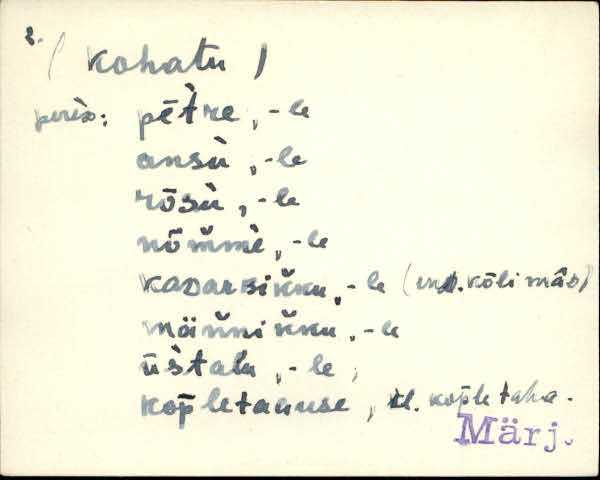 2.
( kohatu )
perès: pētre, -le
ansù, -le
rōsù, -le
nõm̌mè, -le
kaDarBiǩku, -le (end. kõlimâə)
mäňniǩku, -le
ūstalu, -le,
kop̌letaGuse, tl. kop̌letaha.
Märj.